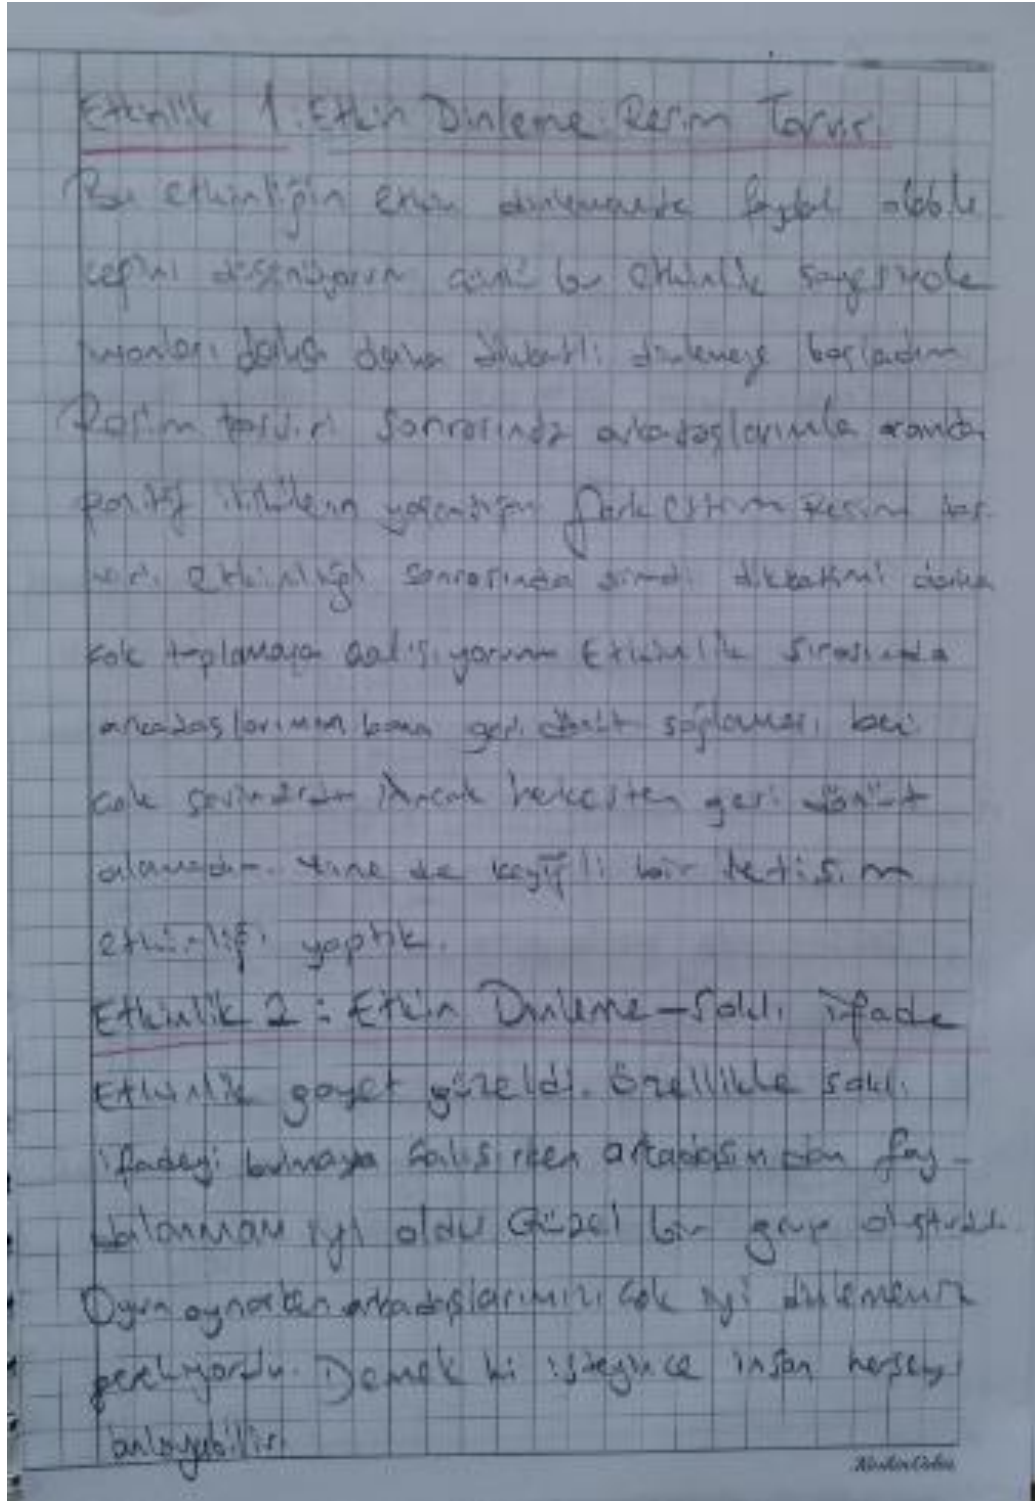 Etkinlik 1: Etkin Dinleme: Resim Tasviri
Bu etkinliğin etkin dinlemede faydalı olabile
ceğini düşünüyorum çünkü bu etkinlik sayesinde
insanları daha daha dikkatli dinlemeye başladım
Resim tasviri sonrasında arkadaşlarımla aramda
pozitif yaşandığını fark ettim Resim tas-
viri etkinliği sonrasında şimdi dikkatimi daha
çok toplamaya çalışıyorum Etkinlik sırasında
arkadaşlarımın bana geri dönüt sağlaması beni
çok sevindirdi Ancak herkesten geri dönüt
alamadım. Yine de keyifli bir iletişim
etkinliği yaptık.
Etkinlik 2: Etkin Dinleme-Saklı ifade
Etkinlik gayet güzeldi. Özellikle saklı
ifadeyi bulmaya çalışırken arkadaşından fay-
dalanması iyi oldu Güzel bir grup oluşturduk
Oyun oynarken arkadaşlarımızı çok iyi dinlememiz
gerekiyordu. Demek ki isteyince insan herşeyi
anlayabilir.